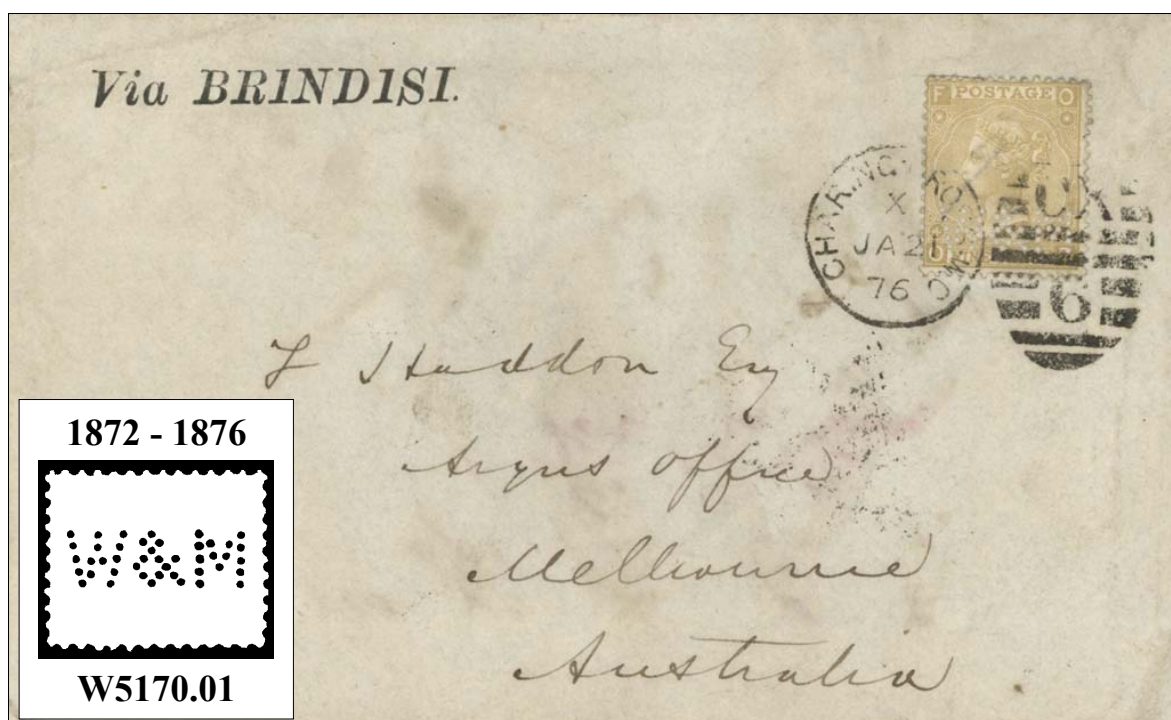 Via BRINDISI.
F POSTAGE O
CHARING CROSS
X
JA 21
76
CX
6
F Haddon Esq
Argus Office
Melbourne
Australia
1872 - 1876
W&M
W5170.01